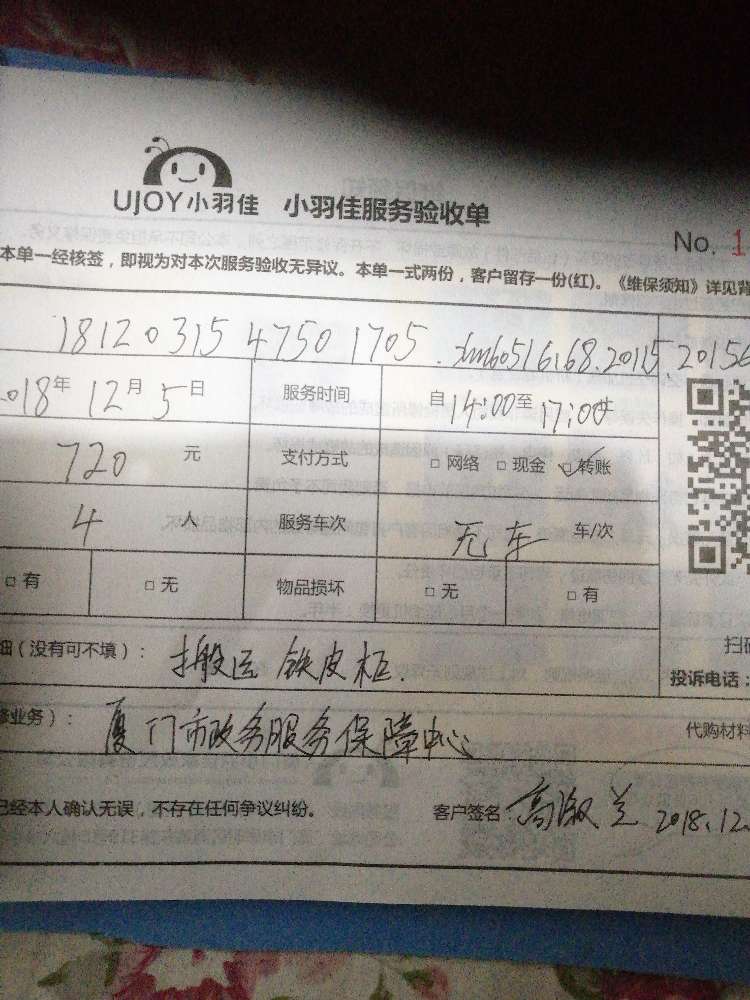 UJOY小羽佳 小羽佳服务验收单
No. 1
本单一经核签，即视为对本次服务验收无异议。本单一式两份，客户留存一份(红)。《维保须知》详见背
18120315 47501705.
018年12月5日 服务时间 自14:00至17:00
720元 支付方式 □网络 □现金 □转账
4人 服务车次 无车 车/次
□有 □无 物品损坏 □无 □有
扫码
细（没有可不填）： 搬运 铁皮柜.
投诉电话：
修业务）： 厦门市政务服务保障中心
代购材料
已经本人确认无误，不存在任何争议纠纷。 客户签名 高淑兰 2018.12.